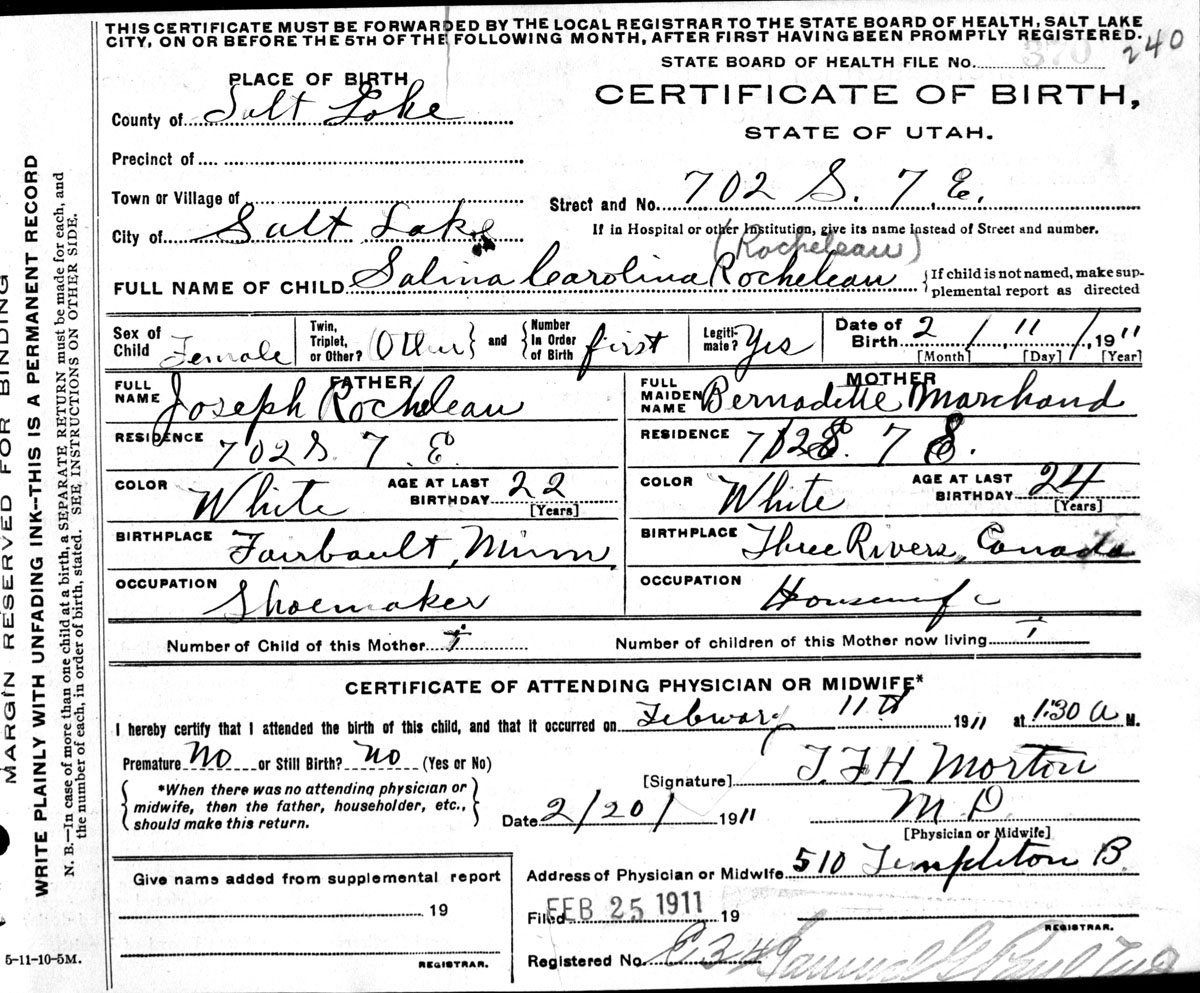 THIS CERTIFICATE MUST BE FORWARDED BY THE LOCAL REGISTRAR TO THE STATE BOARD OF HEALTH, SALT LAKE
CITY, ON OR BEFORE THE 5TH OF THE FOLLOWING MONTH, AFTER FIRST HAVING BEEN PROMPTLY REGISTERED.
240
STATE BOARD OF HEALTH FILE No. 370
PLACE OF BIRTH
CERTIFICATE OF BIRTH,
STATE OF UTAH.
County of Salt Lake
Precinct of
Town or Village of
Street and No. 702 S. 7, E.
City of Salt Lake
If in Hospital or other Institution, give its name instead of Street and number.
(Rocheleau)
FULL NAME OF CHILD Salina Carolina Rocheleau
{If child is not named, make sup-
plemental report as directed
Sex of Child Female
Twin, Triplet, or Other? (Other} and {Number In Order of Birth first
Legiti- mate? Yes
Date of Birth 2 / 11 / 1911
[Month] [Day] [Year]
FATHER
FULL NAME Joseph Rocheleau
RESIDENCE 702 S. 7. E.
COLOR White
AGE AT LAST BIRTHDAY 22
[Years]
BIRTHPLACE Fairbault, Minn,
OCCUPATION Shoemaker
MOTHER
FULL MAIDEN NAME Bernadette Marchand
RESIDENCE 702 S. 7
COLOR White
AGE AT LAST BIRTHDAY 24
[Years]
BIRTHPLACE Three Rivers, Canada
OCCUPATION Housewife
Number of Child of this Mother 1
Number of children of this Mother now living 1
CERTIFICATE OF ATTENDING PHYSICIAN OR MIDWIFE*
I hereby certify that I attended the birth of this child, and that it occurred on February 11th 1911 at 1:30 A M.
Premature No or Still Birth? No (Yes or No)
{*When there was no attending physician or
midwife, then the father, householder, etc.,
should make this return.}
[Signature] T. F. H. Morton
M. D.
Date 2/20/ 1911
[Physician or Midwife]
Address of Physician or Midwife 510 Templeton B.
Give name added from supplemental report
19
REGISTRAR.
Filed FEB 25 1911 19
REGISTRAR.
Registered No. 234
Samuel G. Paul
5-11-10-5M.
MARGIN RESERVED FOR BINDING
WRITE PLAINLY WITH UNFADING INK—THIS IS A PERMANENT RECORD
N. B.—In case of more than one child at a birth, a SEPARATE RETURN must be made for each, and
the number of each, in order of birth, stated. SEE INSTRUCTIONS ON OTHER SIDE.